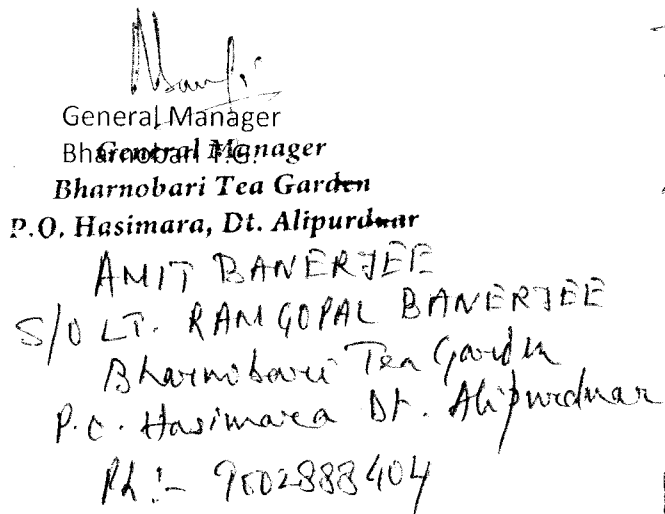 General Manager
Bharnobari T.G.
General Manager
Bharnobari Tea Garden
P.O. Hasimara, Dt. Alipurduar
AMIT BANERJEE
S/O LT. RAMGOPAL BANERJEE
Bharnobari Tea Garden
P.O. Hasimara Dt. Alipurduar
Ph :-